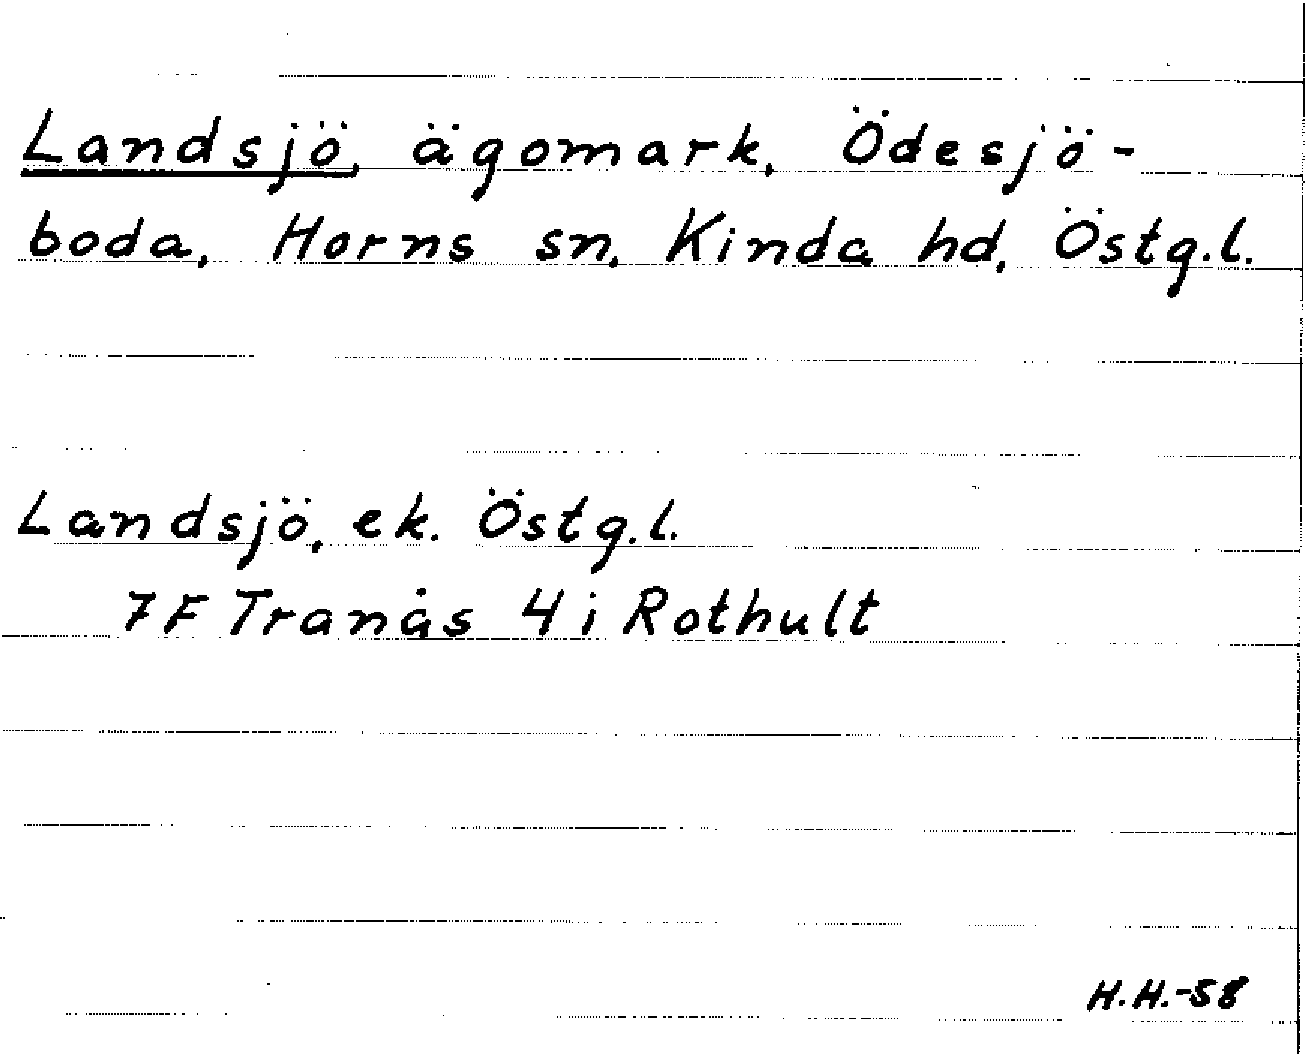 Landsjö, ägomark, Ödesjö-
boda, Horns sn, Kinda hd, Östg.l.
Landsjö, ek. Östg.l.
7F Tranås 4 i Rothult
H.H.-58